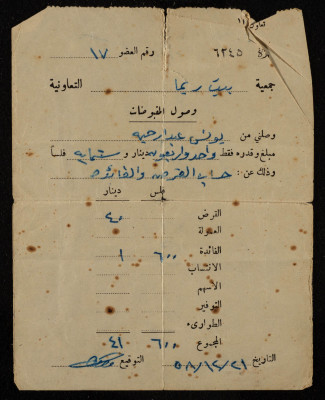 تعاون ١١
٦٢٤٥ ورقم العضو ١٧
جمعية بيت ريما التعاونية
وصول المقبوضات
وصلني من يونس عبد
مبلغ وقدره فقط واحد واربعون دينار و ستماية فلساً
وذلك عن: حساب القرض والفائدة
فلس دينار
القرض ٤٠
العمولة
الفائدة ٦٠٠ ١
الانتساب
الأسهم
التوفير
الطوارىء
المجموع ٦٠٠ ٤١
التاريخ ٥٨/١٢/٢١ التوقيع